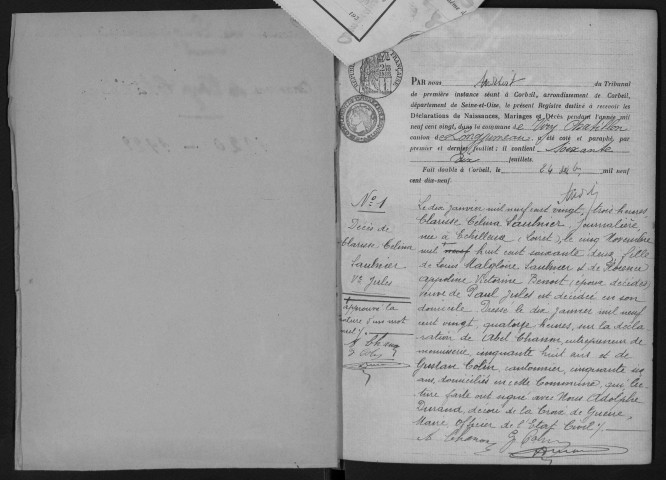 PAR nous du Tribunal
de première instance séant à Corbeil, arrondissement de Corbeil,
département de Seine-et-Oise, le présent Registre destiné à recevoir les
Déclarations de Naissances, Mariages et Décès pendant l'année mil
neuf cent vingt, dans la commune de Viry Chatillon
canton de Longjumeau a été coté et paraphé, par
premier et dernier feuillet; il contient soixante
feuillets.
Fait double à Corbeil, le 24 mil neuf
cent dix-neuf.
N° 1
Décès de
Clarisse Célina
Saulnier
Ve Jules
approuvé la
rature d'un mot
nul
A Chanon
G Colin
Le dix janvier mil neuf cent vingt, trois heures
Clarisse Célina Saulnier, journalière,
née à Echilleuse, Loiret, le cinq Novembre
mil neuf huit cent soixante deux, fille
de Louis Saulnier et de Florence
Victorine Benoist, époux décédés,
veuve de Paul Jules est décédée en son
domicile. Dressé le dix janvier mil neuf
cent vingt, quatorze heures, sur la décla
ration de Abel Chanon, entrepreneur de
menuiserie, cinquante huit ans et de
Gustan Colin, cantonnier, cinquante six
ans, domiciliés en cette Commune, qui, lec
ture faite ont signé avec Nous Adolphe
Durand, décoré de la Croix de Guerre,
Maire Officier de l'Etat Civil
A Chanon G Colin